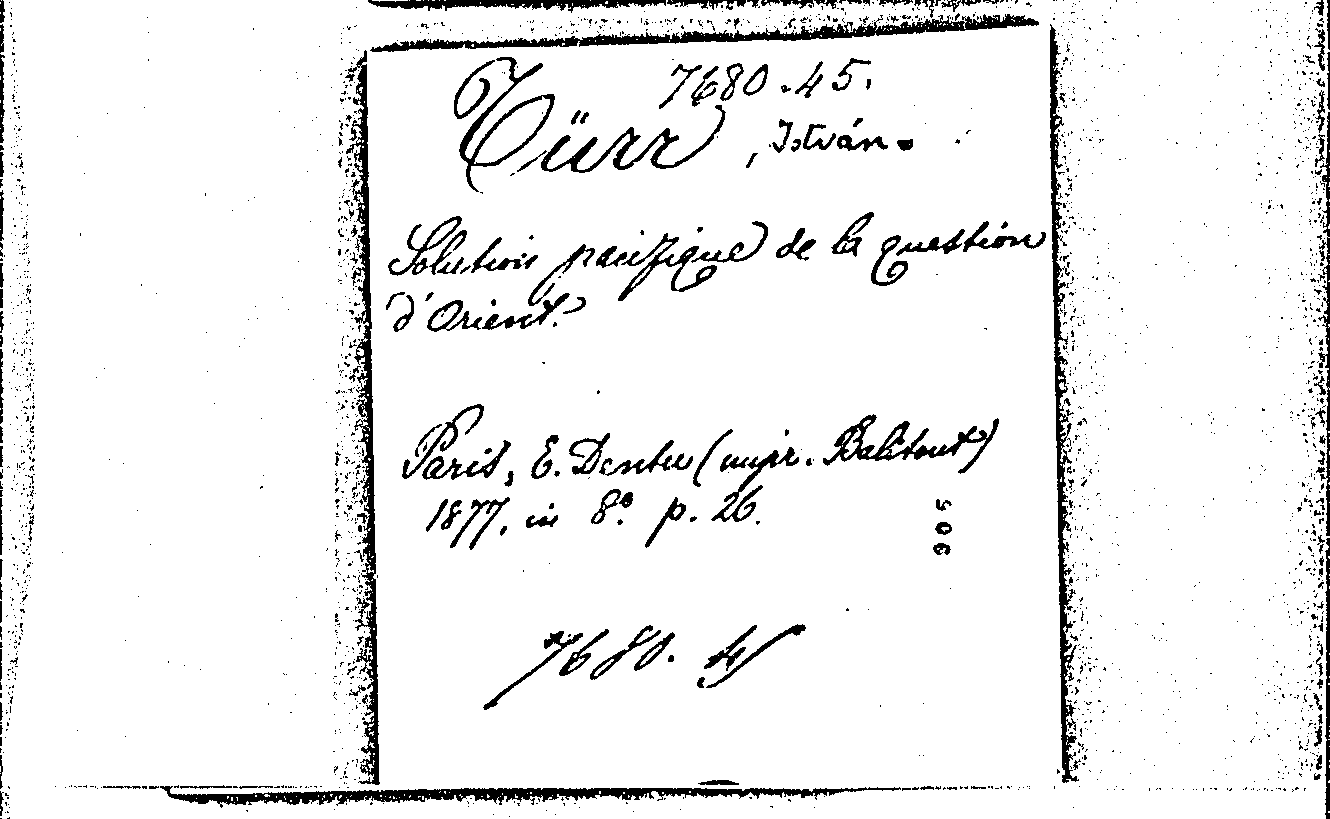 7680.45.
Türr, István.
Solution pacifique de la question
d'Orient.
Paris, E. Dentu (impr. Balitout)
1877, in 8º. p. 26.
7680. 45